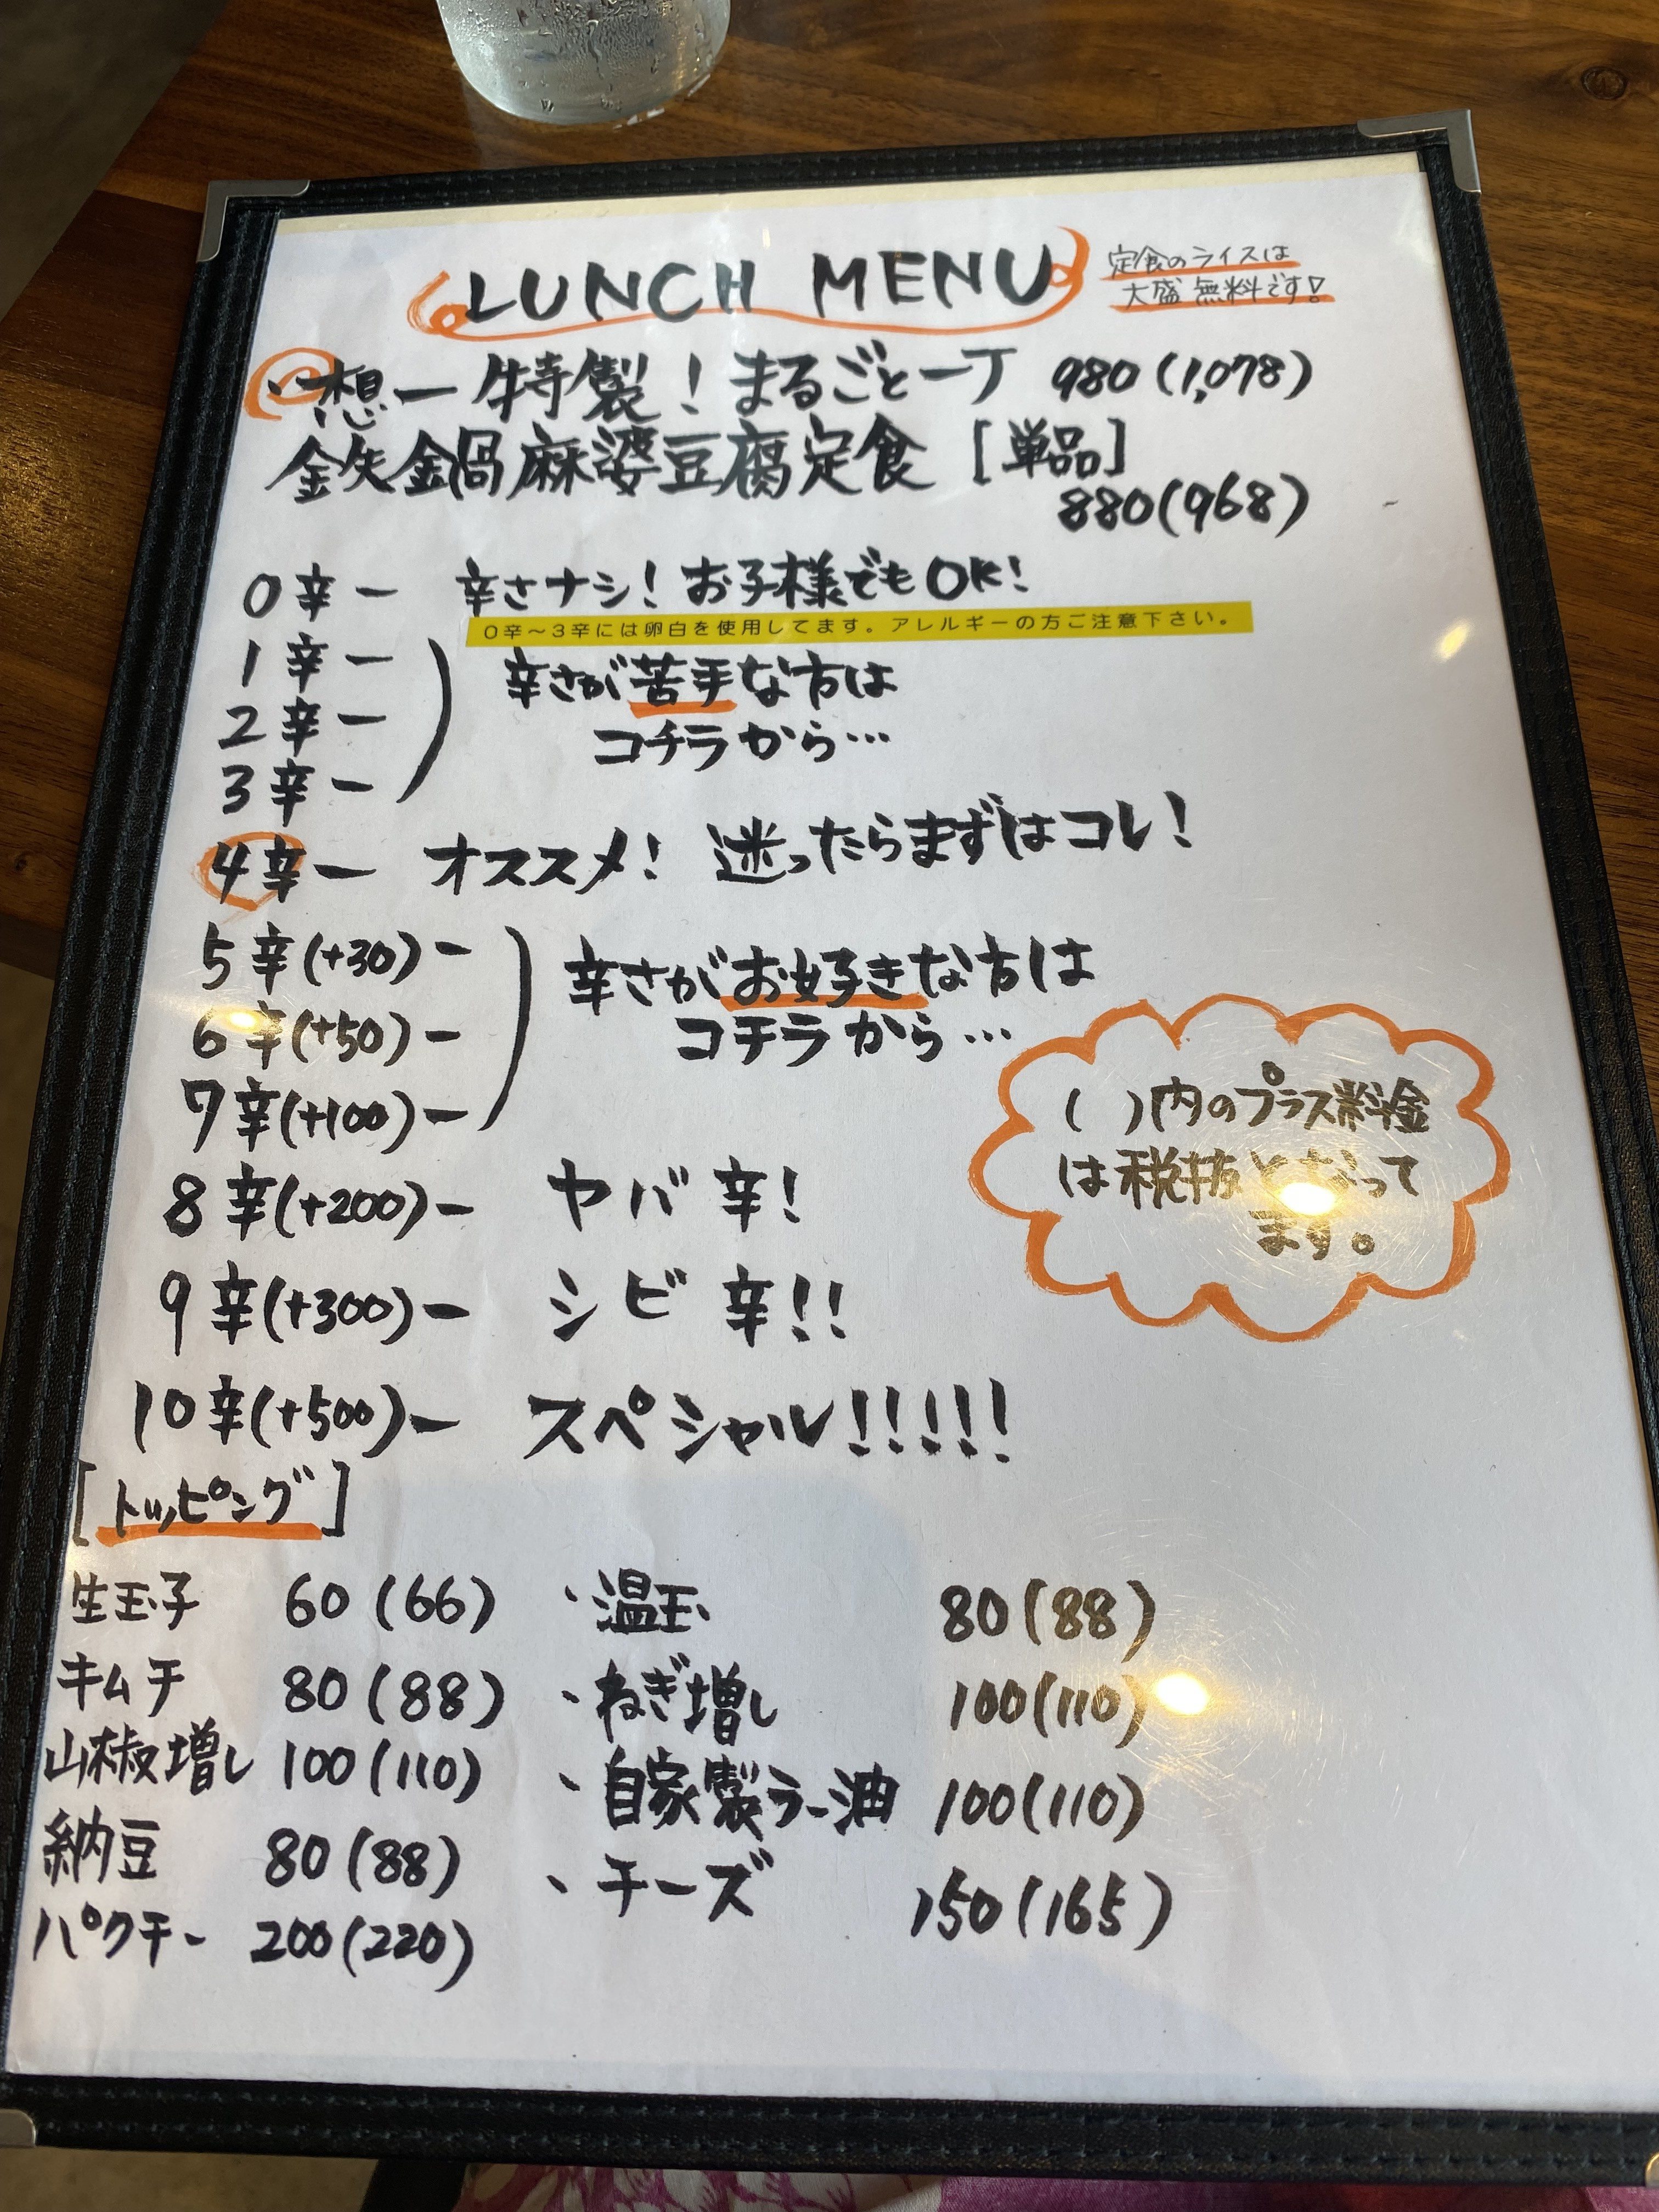 LUNCH MENU
定食のライスは
大盛無料です!
想一特製!まるごと一丁 980(1,078)
鉄鍋麻婆豆腐定食 [単品]
880(968)
0辛ー 辛さナシ!お子様でもOK!
0辛～3辛には卵白を使用してます。アレルギーの方ご注意下さい。
1辛ー 辛さが苦手な方は
2辛ー コチラから…
3辛ー
4辛ー オススメ! 迷ったらまずはコレ!
5辛(+30)ー 辛さがお好きな方は
6辛(+50)ー コチラから…
7辛(+100)ー
( )内のプラス料金
は税抜となって
ます。
8辛(+200)ー ヤバ辛!
9辛(+300)ー シビ辛!!
10辛(+500)ー スペシャル!!!!!
[トッピング]
生玉子 60(66) ・温玉 80(88)
キムチ 80(88) ・ねぎ増し 100(110)
山椒増し 100(110) ・自家製ラー油 100(110)
納豆 80(88) ・チーズ 150(165)
パクチー 200(220)